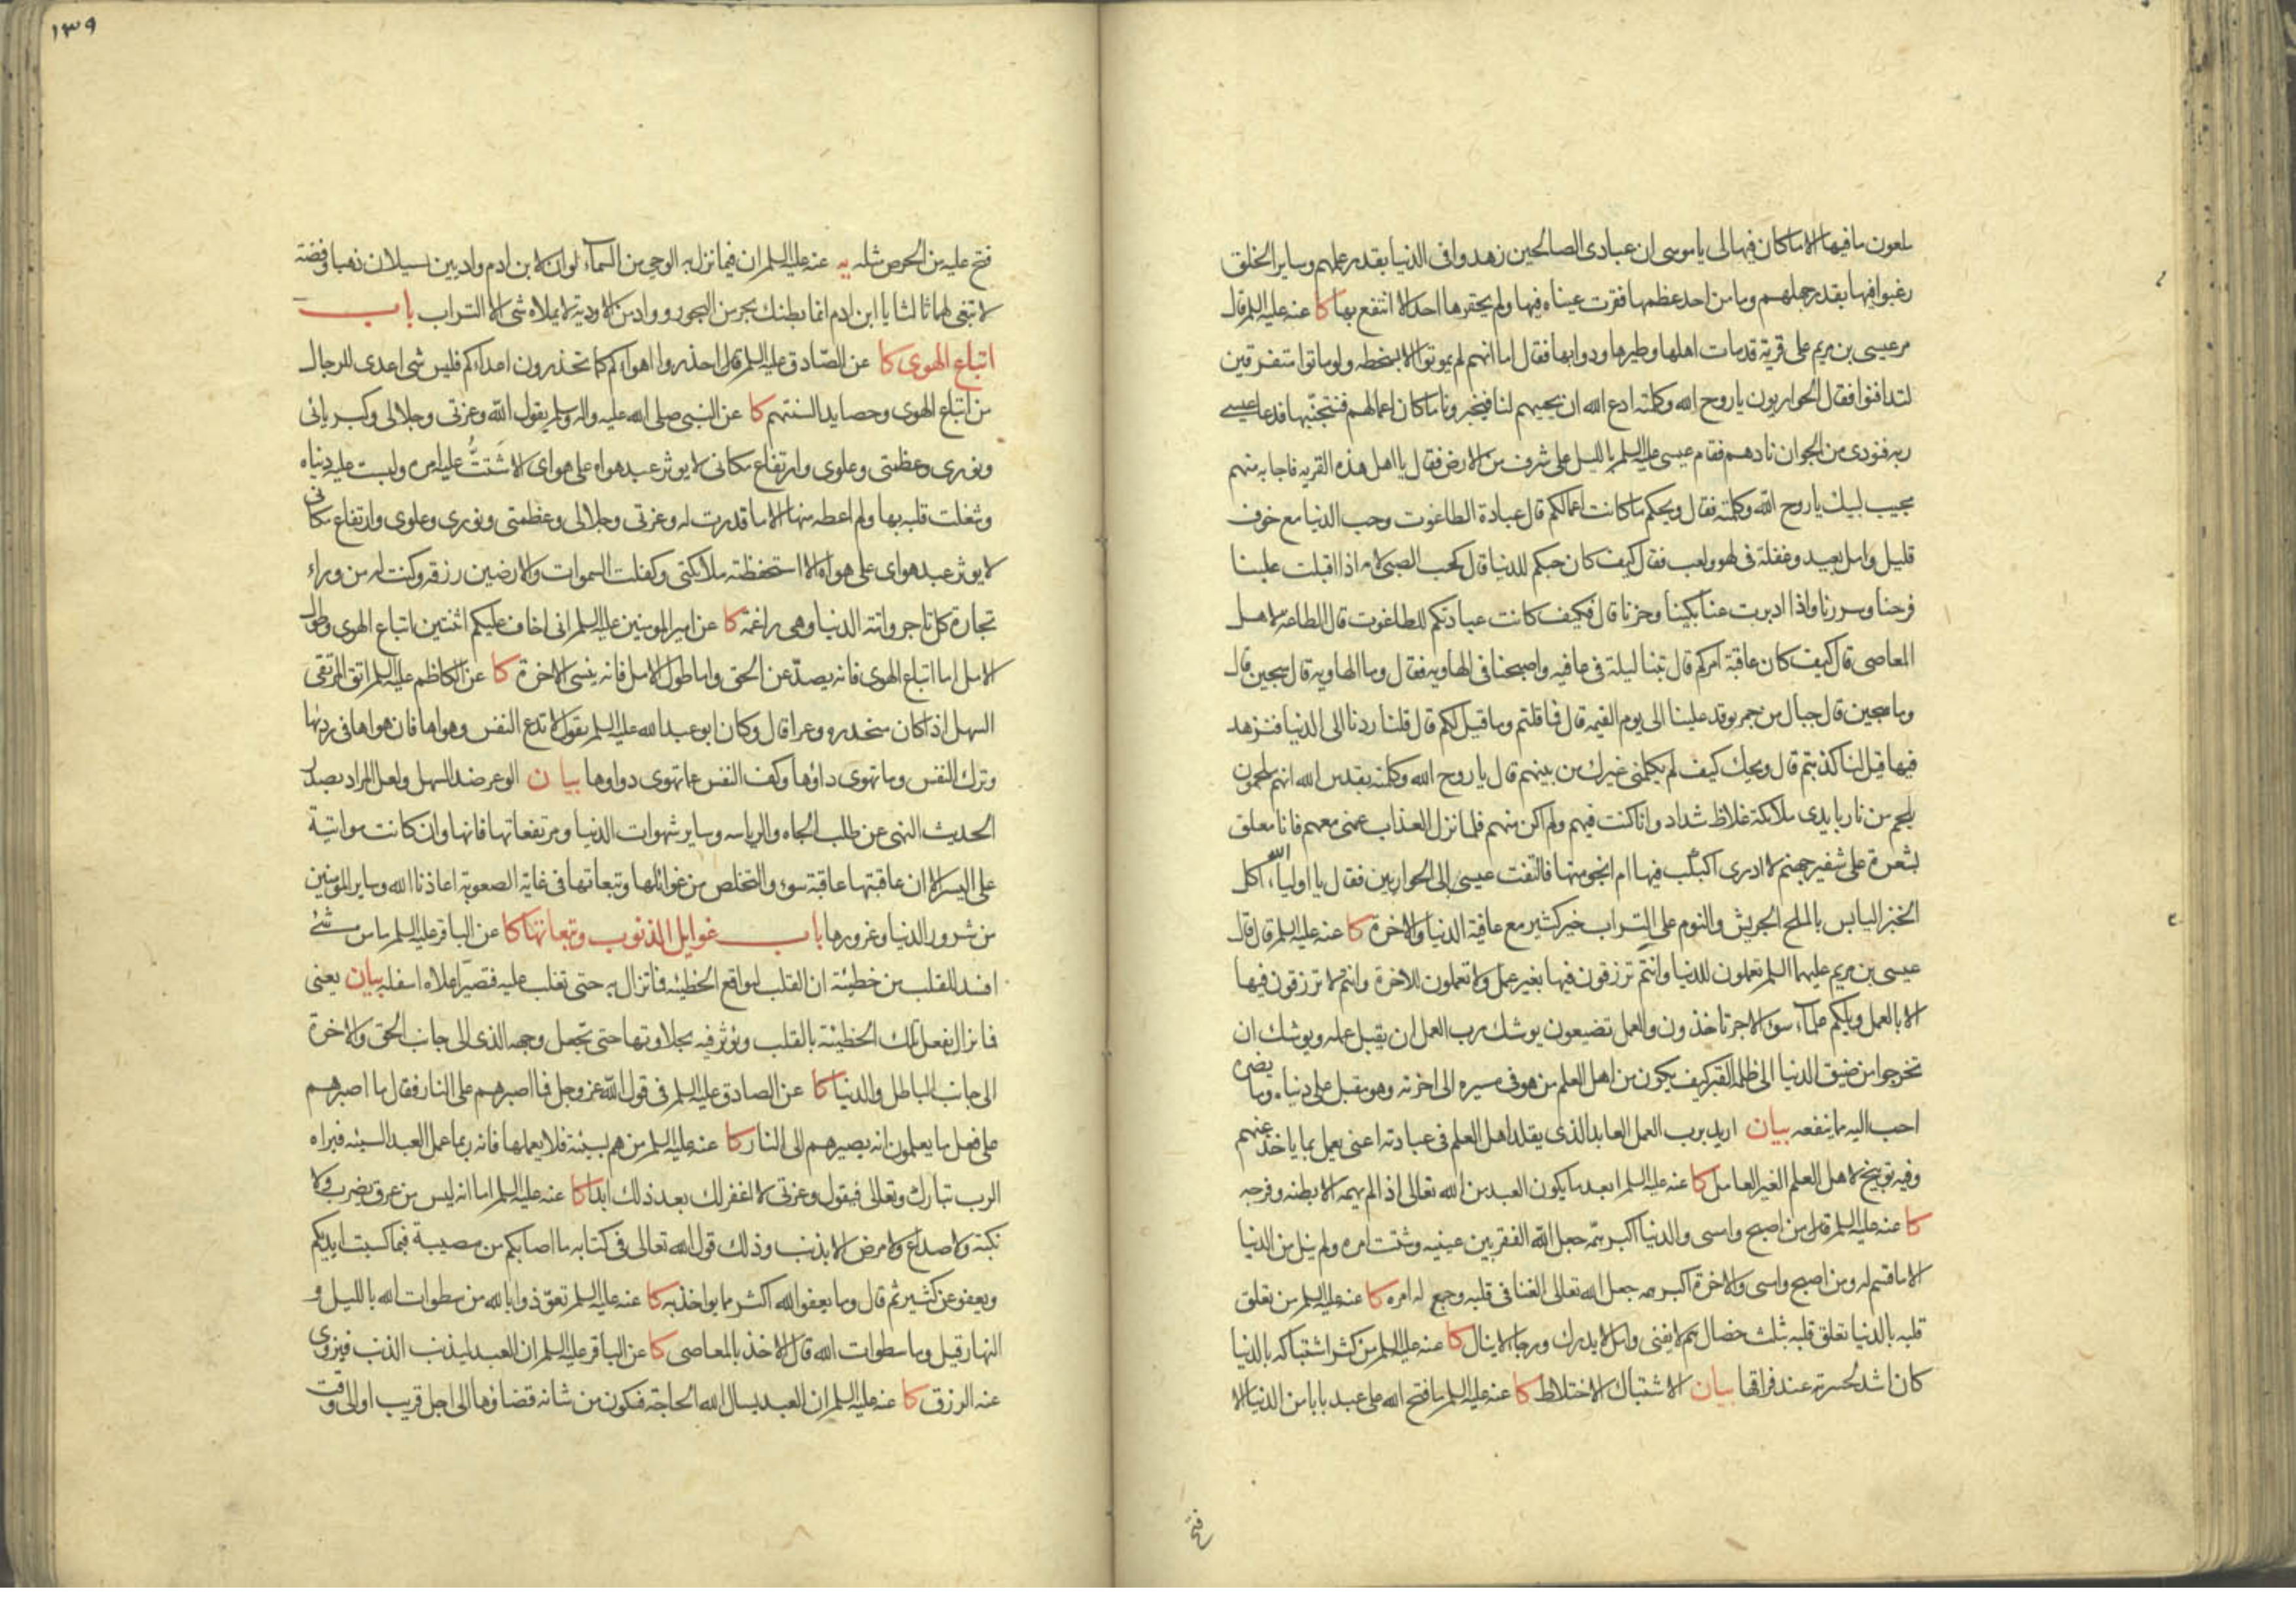 ملعون ما فيها الا ما كان فيها لى يا موسى ان عبادى الصالحين زهدوا فى الدنيا بقدر علمهم وساير الخلق
رغبوا فيها بقدر جهلهم وما من احد عظمها فقرت عيناه فيها ولم يحقرها احد الا انتفع بها كا عنه عليه السلم قال
مر عيسى بن مريم على قرية قد مات اهلها وطيرها ودوابها فقال اما انهم لم يموتوا الا بسخطه ولو ماتوا متفرقين
لتدافنوا فقال الحواريون يا روح الله وكلمته ادع الله ان يحييهم لنا فيخبرونا ما كان اعمالهم فنتجنبها فدعا عيسى
ربه فنودى من الجو ان نادهم فقام عيسى عليه السلم بالليل على شرف من الارض فقال يا اهل هذه القريه فاجابه منهم
مجيب لبيك يا روح الله وكلمته فقال ويحكم ما كانت اعمالكم قال عبادة الطاغوت وحب الدنيا مع خوف
قليل وامل بعيد وغفلة فى لهو ولعب فقال كيف كان حبكم للدنيا قال كحب الصبى لامه اذا اقبلت علينا
فرحنا وسررنا واذا ادبرت عنا بكينا وحزنا قال فكيف كانت عبادتكم للطاغوت قال الطاعة لاهل
المعاصى قال كيف كان عاقبة امركم قال بتنا ليلة فى عافيه واصبحنا فى الهاويه فقال وما الهاويه قال سجين قال
وما سجين قال جبال من جمر يوقد علينا الى يوم القيمه قال فما قلتم وما قيل لكم قال قلنا ردنا الى الدنيا فنزهد
فيها قيل لنا كذبتم قال ويحك كيف لم يكلمنى غيرك من بينهم قال يا روح الله وكلمته بقدس الله انهم ملجمون
بلجم من نار بايدى ملائكة غلاظ شداد وانا كنت فيهم ولم اكن منهم فلما نزل العذاب عمنى معهم فانا معلق
بشعرة على شفير جهنم لا ادرى اكبكب فيها ام انجو منها فالتفت عيسى الى الحواريين فقال يا اولياء الله اكل
الخبز اليابس بالملح الجريش والنوم على التراب خير كثير مع عافية الدنيا والاخرة كا عنه عليه السلم قال قال
عيسى بن مريم عليهما السلم تعملون للدنيا وانتم ترزقون فيها بغير عمل ولا تعملون للاخرة وانتم لا ترزقون فيها
الا بالعمل ويلكم علماء سوء الاجر تاخذون والعمل تضيعون يوشك رب العمل ان يقبل عمله ويوشك ان
تخرجوا من ضيق الدنيا الى ظلمة القبر كيف يكون من اهل العلم من هو فى مسيره الى اخرته وهو مقبل على دنياه وما يضره
احب اليه مما ينفعه بيان اريد برب العمل العابد الذى يقلد اهل العلم فى عبادته اعنى يعمل بما ياخذ عنهم
وفيه توبيخ لاهل العلم الغير العامل كا عنه عليه السلم ابعد ما يكون العبد من الله تعالى اذا لم يهمه الا بطنه وفرجه
كا عنه عليه السلم قال من اصبح وامسى والدنيا اكبر همه جعل الله الفقر بين عينيه وشتت امره ولم ينل من الدنيا
الا ما قسم له ومن اصبح وامسى والاخرة اكبر همه جعل الله تعالى الغنا فى قلبه وجمع له امره كا عنه عليه السلم من تعلق
قلبه بالدنيا تعلق قلبه بثلث خصال هم لا يفنى وامل لا يدرك ورجاء لا ينال كا عنه عليه السلم من كثر اشتباكه بالدنيا
كان اشد لحسرته عند فراقها بيان الاشتباك الاختلاط كا عنه عليه السلم ما فتح الله على عبد بابا من الدنيا الا
فتح
١٣٩
فتح عليه من الحرص مثله يه عنه عليه السلم ان فيما نزل به الوحى من السماء لو ان لابن ادم واديين يسيلان ذهبا وفضة
لابتغى لهما ثالثا يا ابن ادم انما بطنك بحر من البحور وواد من الاودية لا يملاه شى الا التراب باب
اتباع الهوى كا عن الصادق عليه السلم قال احذروا اهواءكم كما تحذرون اعداءكم فليس شى اعدى للرجال
من اتباع الهوى وحصايد السنتهم كا عن النبى صلى الله عليه واله وسلم يقول الله وعزتى وجلالى وكبريائى
ونورى وعظمتى وعلوى وارتفاع مكانى لا يوثر عبد هواه على هواى الا شتت عليه امره ولبست عليه دنياه
وشغلت قلبه بها ولم اعطه منها الا ما قدرت له وعزتى وجلالى وعظمتى ونورى وعلوى وارتفاع مكانى
لا يوثر عبد هواى على هواه الا استحفظته ملائكتى وكفلت السموات والارضين رزقه وكنت له من وراء
تجارة كل تاجر واتته الدنيا وهى راغمة كا عن امير المومنين عليه السلم انى اخاف عليكم اثنتين اتباع الهوى وطول
الامل اما اتباع الهوى فانه يصد عن الحق واما طول الامل فانه ينسى الاخرة كا عن الكاظم عليه السلم اتق المرتقى
السهل اذا كان منحدره وعرا قال وكان ابو عبد الله عليه السلم يقول لا تدع النفس وهواها فان هواها فى رديها
وترك النفس وما تهوى داؤها وكف النفس عما تهوى دواوها بيان الوعر ضد السهل ولعل المراد بصدر
الحديث النهى عن طلب الجاه والرياسه وساير شهوات الدنيا ومرتفعاتها فانها وان كانت مواتية
على اليسر الا ان عاقبتها عاقبة سوء والتخلص من غوائلها وتبعاتها فى غاية الصعوبة اعاذنا الله وساير المومنين
من شرور الدنيا وغرورها باب غوايل الذنوب وتبعاتها كا عن الباقر عليه السلم ما من شئ
افسد للقلب من خطيئة ان القلب ليواقع الخطيئه فما تزال به حتى تغلب عليه فتصير اعلاه اسفله بيان يعنى
فما تزال تفعل تلك الخطيئة بالقلب وتؤثر فيه بحلاوتها حتى تجعل وجهه الذى الى جانب الحق والاخرة
الى جانب الباطل والدنيا كا عن الصادق عليه السلم فى قول الله عز وجل فما اصبرهم على النار فقال ما اصبرهم
على فعل ما يعلمون انه يصيرهم الى النار كا عنه عليه السلم من هم بسيئة فلا يعملها فانه ربما عمل العبد السيئه فيراه
الرب تبارك وتعالى فيقول وعزتى لا اغفر لك بعد ذلك ابدا كا عنه عليه السلم اما انه ليس من عرق يضرب ولا
نكبة ولا صداع ولا مرض الا بذنب وذلك قول الله تعالى فى كتابه ما اصابكم من مصيبة فبما كسبت ايديكم
ويعفو عن كثير ثم قال وما يعفو الله اكثر مما يواخذ به كا عنه عليه السلم تعوذوا بالله من سطوات الله بالليل و
النهار قيل وما سطوات الله قال الاخذ بالمعاصى كا عن الباقر عليه السلم ان العبد ليذنب الذنب فيزوى
عنه الرزق كا عنه عليه السلم ان العبد يسال الله الحاجة فيكون من شانه قضاؤها الى اجل قريب او الى وقت